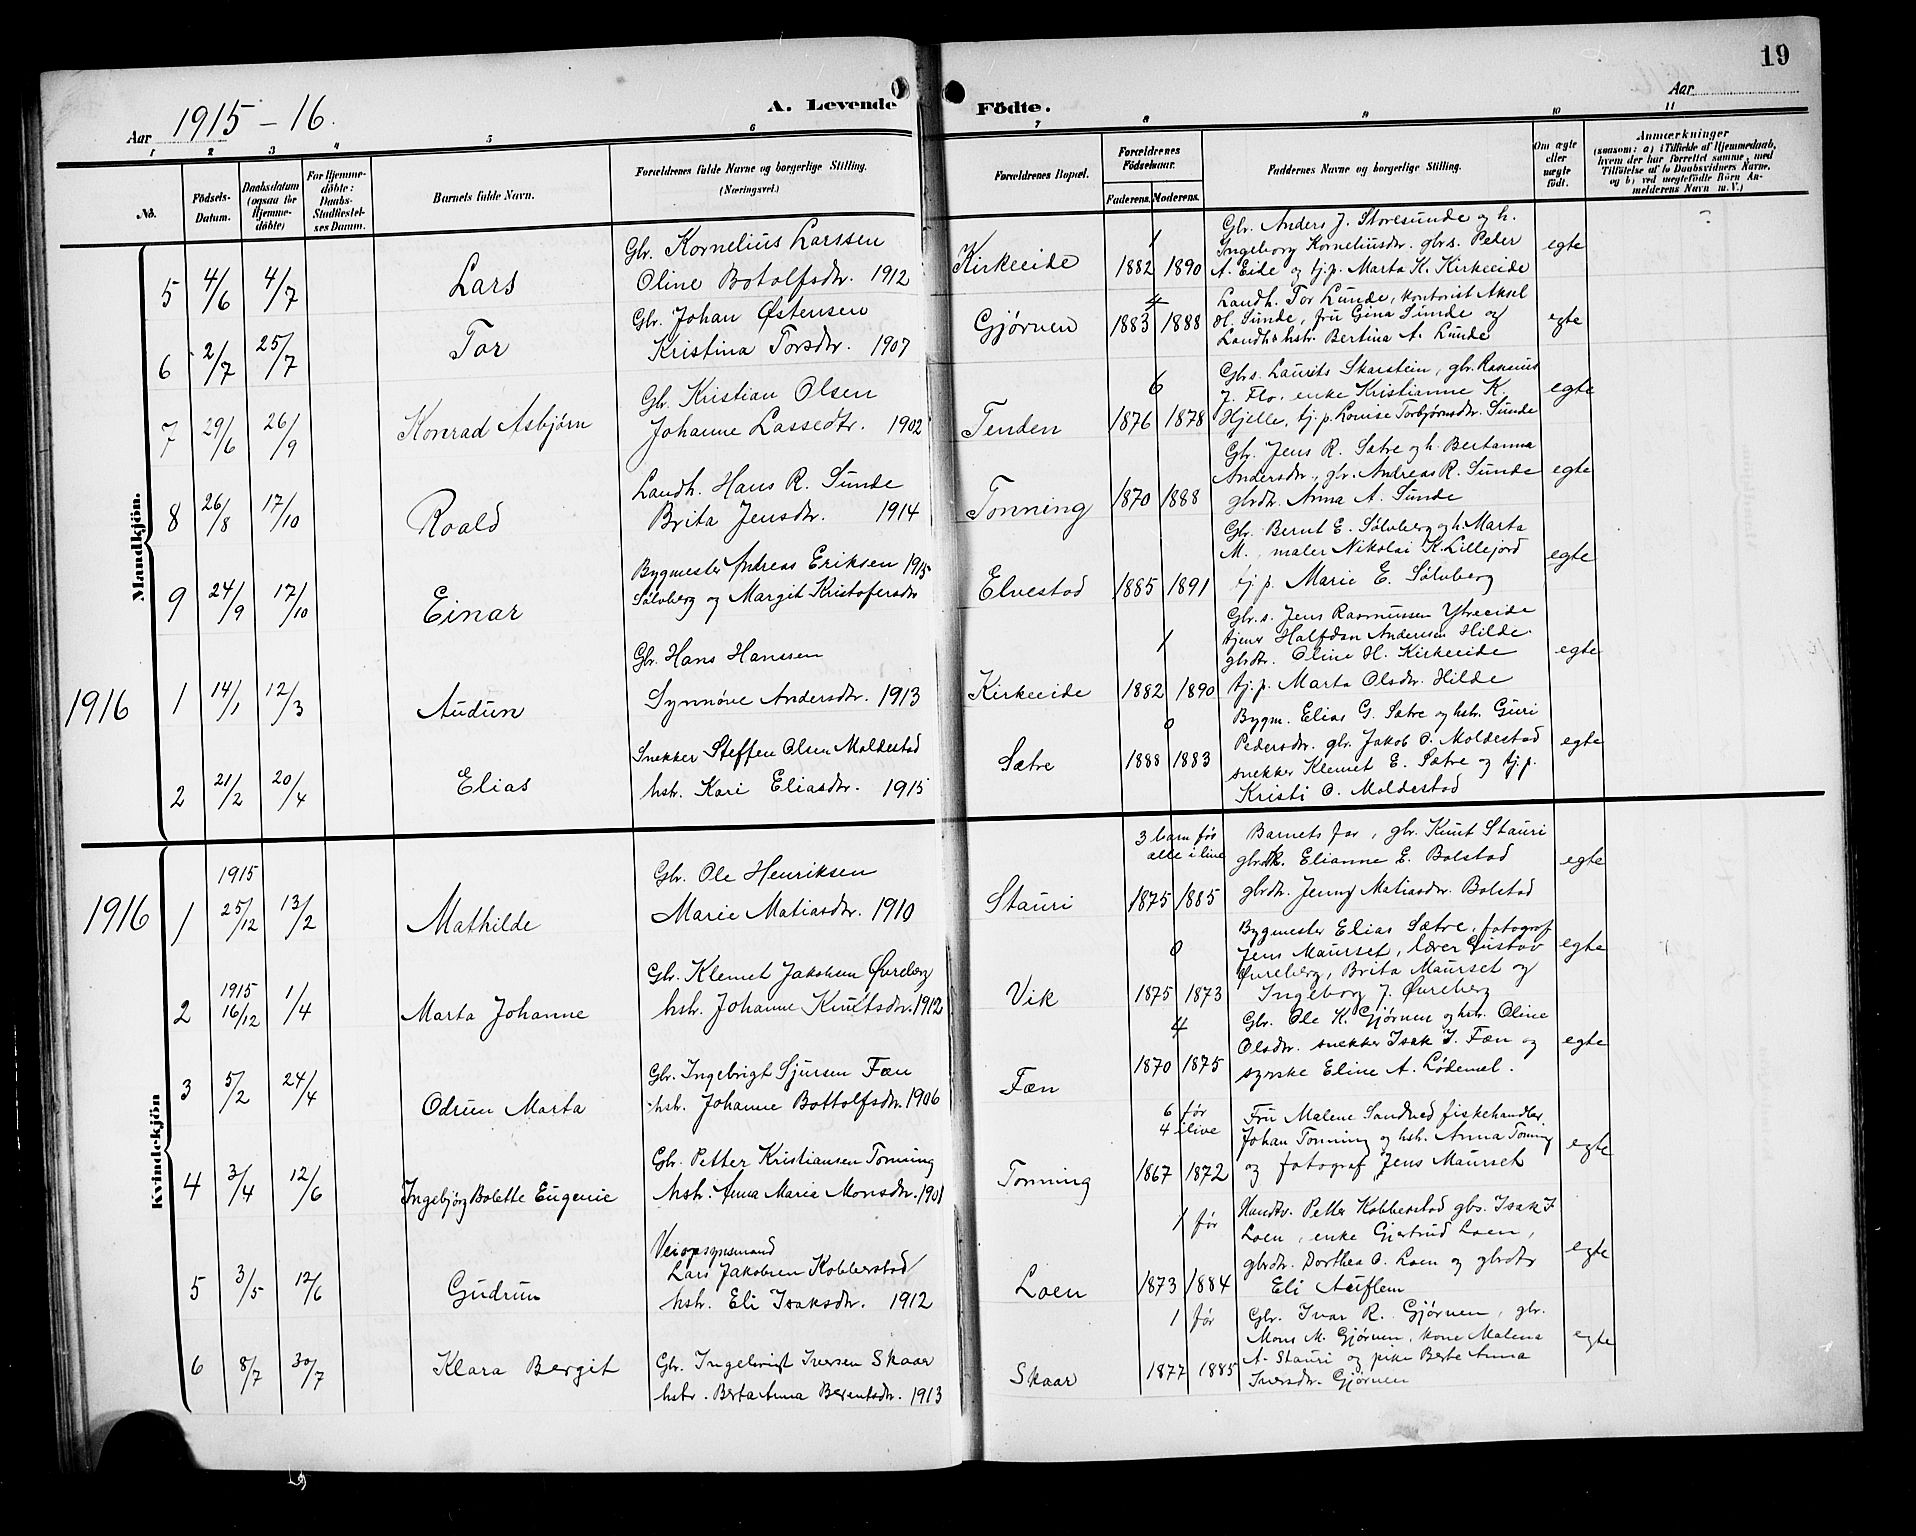 19
Aar 1915-16.
A. Levende Födte.
Aar
1 2 3 4 5 6 7 8 9 10 11
No.
Födsels-Datum.
Daabsdatum (ogsaa for Hjemmedöbte)
For Hjemmedöbte: Daabs-Stadfæstelses Datum.
Barnets fulde Navn.
Forældrenes fulde Navne og borgerlige Stilling. (Næringsvei.)
Forældrenes Bopæl.
Forældrenes Födselsaar.
Faderens. Moderens.
Faddernes Navne og borgerlige Stilling.
Om ægte eller uægte födt.
Anmærkninger
(saasom: a) i Tilfælde af Hjemmedaab,
hvem der har forrettet samme, med
Tilföielse af to Daabsvidners Navne,
og b) ved uægtefödte Börn Anmelderens Navn m. V.)
Mandkjön.
5 4/6 4/7 Lars
Gbr. Kornelius Larssen
Oline Botolfsdtr. 1912
Kirkeeide
1
1882 1890
Gbr. Anders J. Storesunde og h.
Ingeborg Korneliusdr. gbrs. Peder
A. Eide og tj.p. Marta K. Kirkeeide
egte
6 2/7 25/7 Tor
Gbr. Johan Østensen
Kristina Torsdtr. 1907
Gjørven
4
1883 1888
Landh. Tor Lunde, kontorist Aksel
Ol. Sunde, fru Gina Sunde og
Landh.hstr. Bertina A. Lunde
egte
7 29/6 26/9 Konrad Asbjørn
Gbr. Kristian Olsen
Johanne Lassedtr. 1902
Tenden
6
1876 1878
Gbrs. Laurits Skarstein, gbr. Rasmus
J. Flo, enke Kristianne K.
Hjelle, tj.p. Louise Torbjørnsdtr. Sunde
egte
8 26/8 17/10 Roald
Landh. Hans R. Sunde
Brita Jensdtr. 1914
Tonning
1870 1888
Gbr. Jens R. Sætre og h. Bertanna
Andersdtr., gbr. Andreas R. Sunde
gbrdtr. Anna A. Sunde
egte
9 24/9 17/10 Einar
Bygmester Andreas Eriksen 1915
Sølvberg og Margit Kristofersdtr
Elvestad
1885 1891
Gbr. Bernt E. Sølvberg og h. Marta
M., maler Nikolai K. Lillejord
tj.p. Marie E. Sølvberg
egte
1916
1 14/1 12/3 Audun
Gbr. Hans Hanssen
Synnøve Andersdtr. 1913
Kirkeeide
1
1882 1890
Gbr.s. Jens Rasmussen Ytreeide
tjener Halfdan Andersen Hilde
gbrdtr. Oline H. Kirkeeide
tj.p. Marta Olsdtr. Hilde
egte
2 21/2 20/4 Elias
Snekker Steffen Olsen Moldestad
hstr. Kari Eliasdtr. 1915
Sætre
0
1888 1883
Bygm. Elias G. Sætre og hstr. Guri
Pedersdtr. gbr. Jakob O. Moldestad
snekker Klemet E. Sætre og tj.p.
Kristi O. Moldestad
egte
Kvindekjön
1916
1 1915 25/12 13/2 Mathilde
Gbr. Ole Henriksen
Marie Matiasdtr. 1910
Stauri
3 barn før
alle i live
1875 1885
Barnets far, gbr. Knut Stauri
gbrdtr. Elianne E. Bolstad
gbrdtr. Jenny Matiasdtr. Bolstad
egte
2 1915 16/12 1/4 Marta Johanne
Gbr. Klemet Jakobsen Øvreberg
hstr. Johanne Knutsdtr. 1912
Vik
0
1875 1873
Bygmester Elias Sætre, fotograf
Jens Maurset, lærer Gustav
Øvreberg, Brita Maurset og
Ingeborg J. Øvreberg
egte
3 5/2 24/4 Odrun Marta
Gbr. Ingebrigt Sjursen Fæn
hstr. Johanne Bottolfsdtr. 1906
Fæn
4
1870 1875
Gbr. Ole K. Gjørven og hstr. Oline
Olsdtr. snekker Isak I. Fæn og
syerske Eline A. Lødemel.
egte
4 3/4 12/6 Ingebjørg Bolette Eugenie
Gbr. Petter Kristiansen Tonning
hstr. Anna Marie Monsdtr. 1901
Tonning
6 før
4 ilive
1867 1872
Fru Malene Sandved fiskehandler
Johan Tonning og hstr. Anna Tonning
og fotograf Jens Maurset
egte
5 3/5 12/6 Gudrun
Veiopsynsmand
Lars Jakobsen Kobberstad
hstr. Eli Isaksdtr. 1912
Loen
1 før
1873 1884
Handv. Petter Kobberstad gbs. Isak I.
Loen, enke Gjertrud Loen,
gbrdtr. Dorthea O. Loen og gbrdtr
Eli Auflem
egte
6 8/7 30/7 Klara Bergit
Gbr. Ingebrigt Iversen Skaar
hstr. Berta Anna Berentsdtr. 1913
Skaar
1 før
1877 1885
Gbr. Ivar R. Gjørven, gbr.
Mons M. Gjørven, kone Malena
A. Stauri og pike Berte Anna
Iversdtr. Gjørven
egte